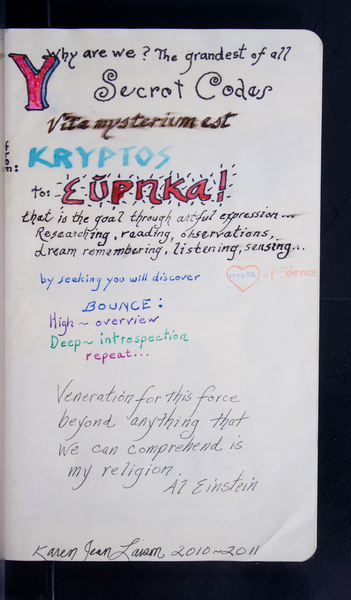 Y Why are we? The grandest of all
Secret Codes
Vita mysterium est
KRYPTOS
to: Eυρηka!
that is the goal through artful expression...
Researching, reading, observations,
dream remembering, listening, sensing...
by seeking you will discover
create of Science
BOUNCE:
High ~ overview
Deep ~ introspection
repeat...
Veneration for this force
beyond anything that
we can comprehend is
my religion.
Al Einstein
Karen Jean Larson 2010~2011